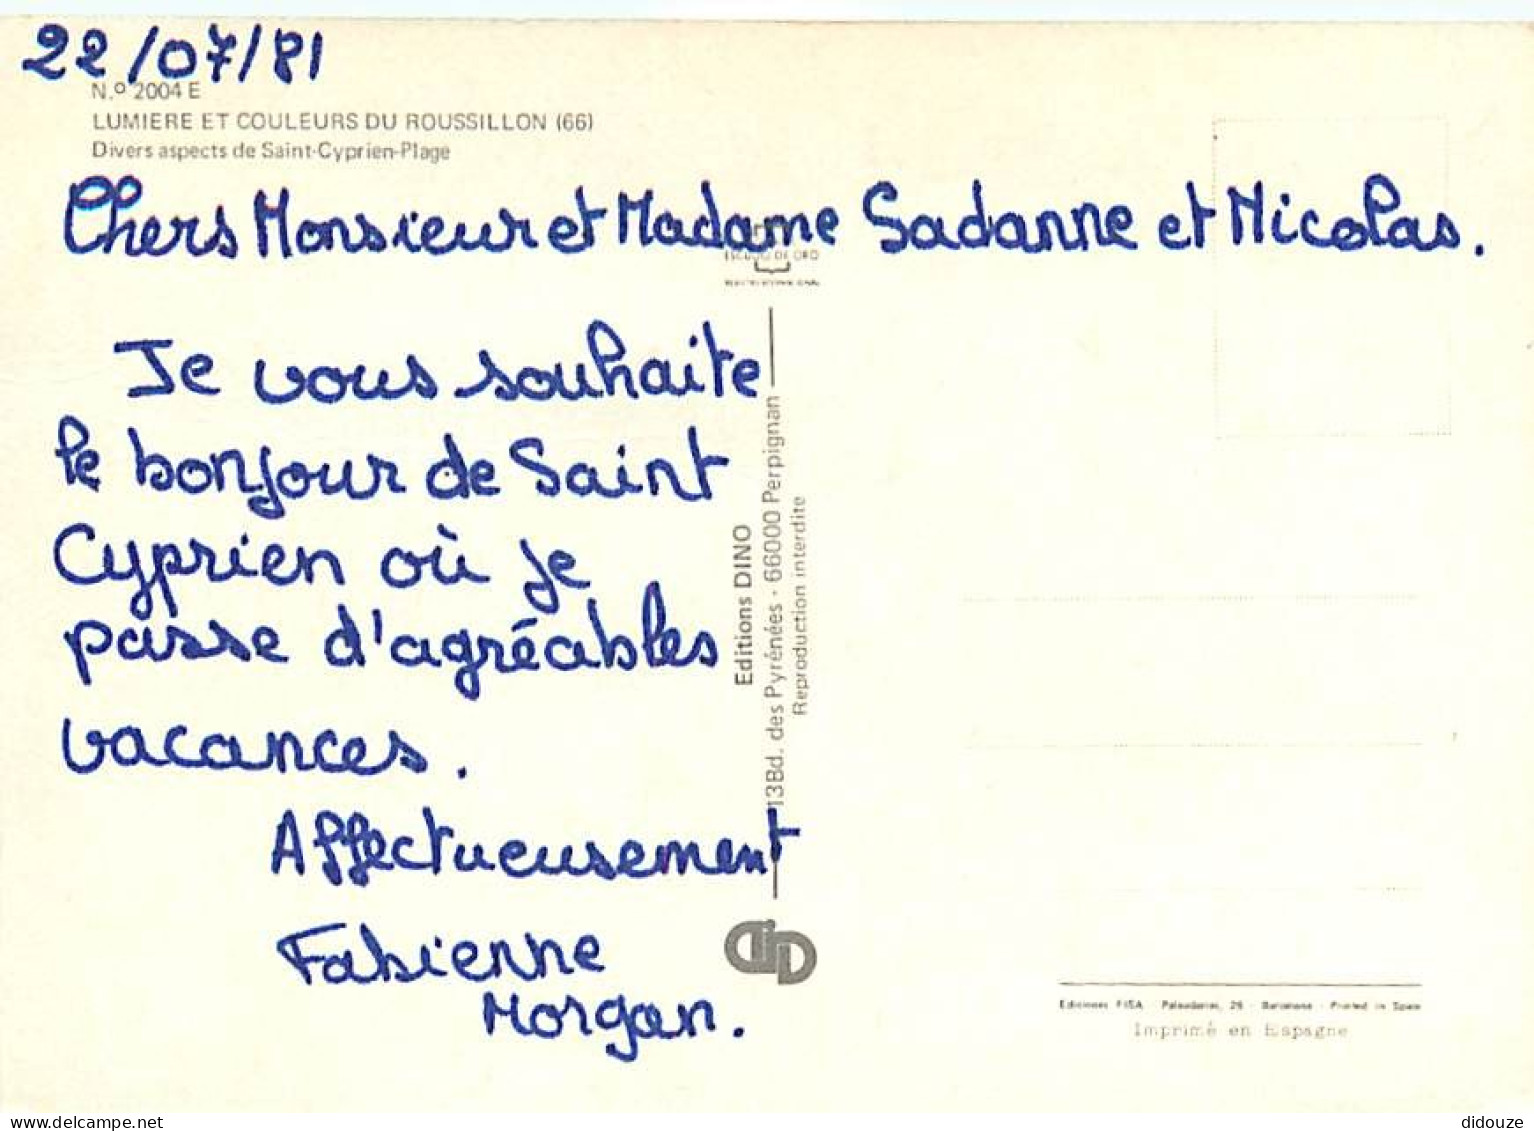 22/07/81
N.º 2004 E
LUMIERE ET COULEURS DU ROUSSILLON (66)
Divers aspects de Saint-Cyprien-Plage
Chers Monsieur et Madame Sadanne et Nicolas.
ESCUDO DE ORO
Je vous souhaite
le bonjour de Saint
Cyprien où je
passe d'agréables
vacances.
Affectueusement
Fabienne
Morgan.
Editions DINO
13Bd. des Pyrénées - 66000 Perpignan
Reproduction interdite
Ediciones FISA - Palaudarias, 26 - Barcelona - Printed in Spain
Imprimé en Espagne
delcampe.net
didouze